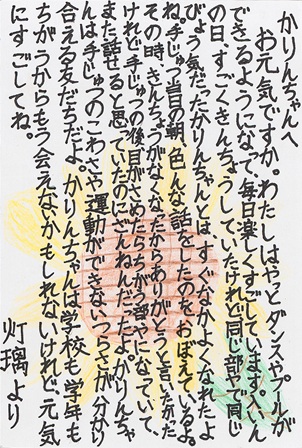 かりんちゃんへ
お元気ですか。わたしはやっとダンスやプールが
できるようになって、毎日楽しくすごしています。入いん
の日、すごくきんちょうしていたけれど同じ部屋で同じ
びょう気だったかりんちゃんとは、すぐなかよくなれたよ
ね。手じゅつ当日の朝、色んな話をしたのを、おぼえているよ。
その時、きんちょうがなくなったからありがとうと言いたかった
けれど手じゅつの後目がさめたらちがう部やになっていて、
また話せると思っていたのにざんねんだったよ。かりんちゃ
んは手じゅつのこわさや運動ができないつらさが分かり
合える友だちだよ。かりんちゃんは学校も学年も
ちがうからもう会えないかもしれないけれど元気
にすごしてね。
灯璃より